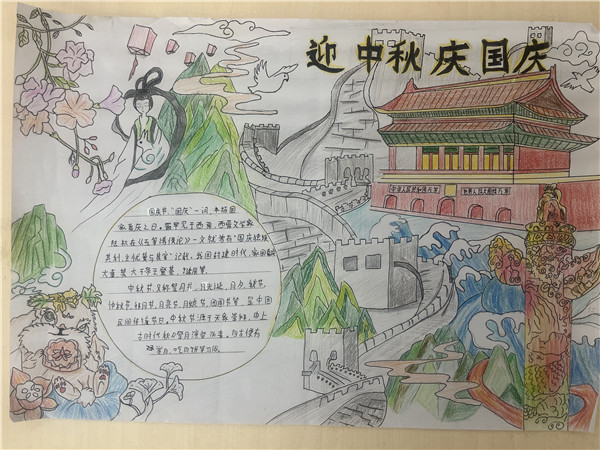 迎中秋庆国庆
中华人民共和国万岁 世界人民大团结万岁
国庆节,"国庆"一词,本指国
家喜庆之日,最早见于西晋,西晋文学家
陆机在《五等诸侯论》一文就曾有"国庆独飨
其利,主忧莫与其害"记载,我国封建时代,家国喜庆
大事,莫大于帝王登基、诞辰等
中秋节又称望月节、月光诞、月夕、秋节、
仲秋节、拜月节、月亮节、月娘节、团圆节等,是中国
民间传统节日,中秋节源于天象崇拜,由上
古时代秋夕望月演
赏月、吃月饼等习俗